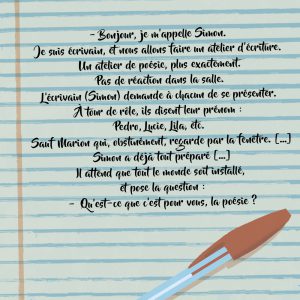 - Bonjour, je m'appelle Simon.
Je suis écrivain, et nous allons faire un atelier d'écriture.
Un atelier de poésie, plus exactement.
Pas de réaction dans la salle.
L'écrivain (Simon) demande à chacun de se présenter.
À tour de rôle, ils disent leur prénom :
Pedro, Lucie, Lila, etc.
Sauf Marion qui, obstinément, regarde par la fenêtre. [...]
Simon a déjà tout préparé [...]
Il attend que tout le monde soit installé,
et pose la question :
- Qu'est-ce que c'est pour vous, la poésie ?